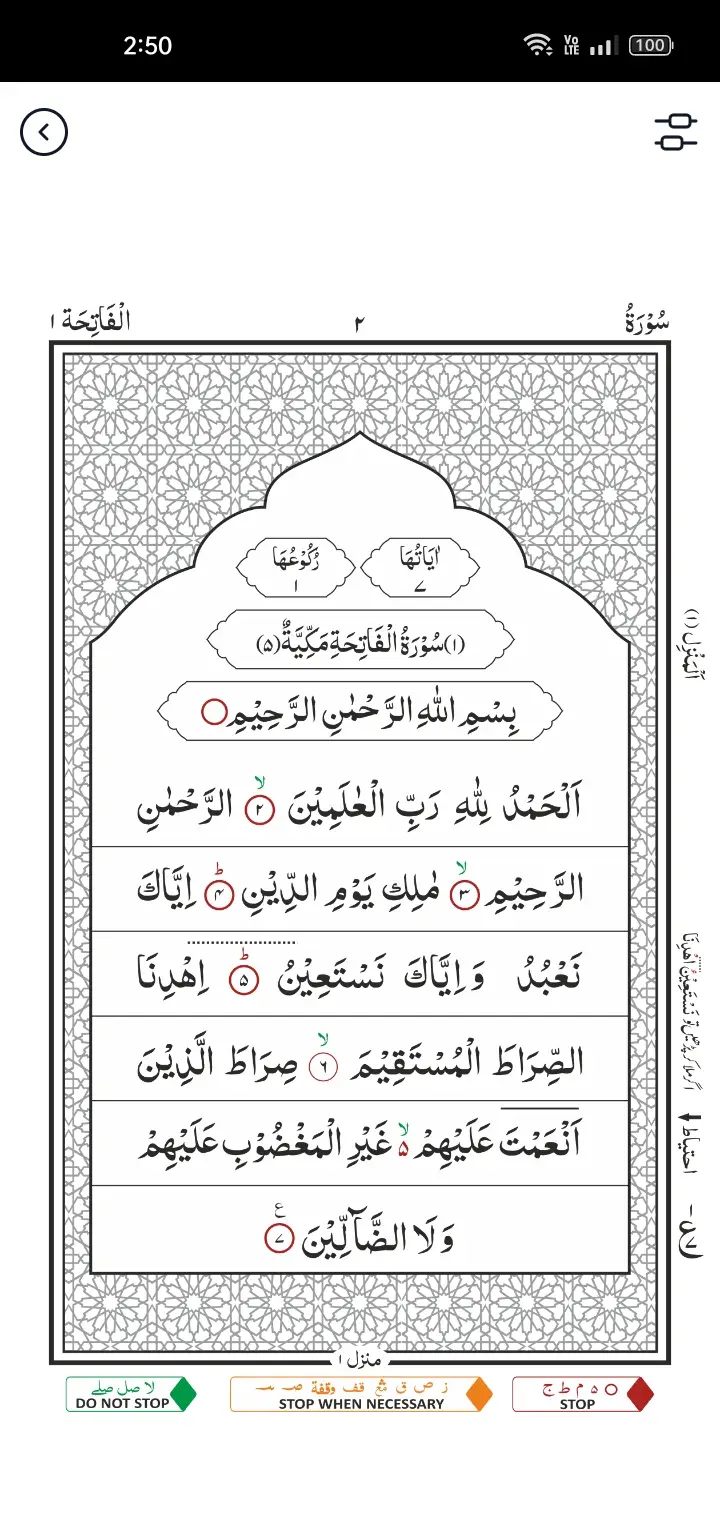 2:50
Vo LTE
100
سُوْرَةُ ٢ الْفَاتِحَة ١
اٰيَاتُهَا ٧
رُكُوْعُهَا ١
(١)سُوْرَةُ الْفَاتِحَةِ مَكِّيَّةٌ(٥)
بِسْمِ اللّٰهِ الرَّحْمٰنِ الرَّحِيْمِ
اَلْحَمْدُ لِلّٰهِ رَبِّ الْعٰلَمِيْنَ ۙ ٢ الرَّحْمٰنِ
الرَّحِيْمِ ۙ ٣ مٰلِكِ يَوْمِ الدِّيْنِ ؕ ۴ اِيَّاكَ
نَعْبُدُ وَ اِيَّاكَ نَسْتَعِيْنُ ؕ ۵ اِهْدِنَا
الصِّرَاطَ الْمُسْتَقِيْمَ ۙ ٦ صِرَاطَ الَّذِيْنَ
اَنْعَمْتَ عَلَيْهِمْ ۙ ۵ غَيْرِ الْمَغْضُوْبِ عَلَيْهِمْ
وَلَا الضَّآلِّيْنَ ع ٧
اَلْمَنْزِل (١)
اگر ملا کر پڑھیں تو نَسْتَعِيْنُ اهْدِنَا
احتیاط
منزل ١
لا صل صلے
DO NOT STOP
ز ص ق قف وقفة
STOP WHEN NECESSARY
۵ م ط ج
STOP